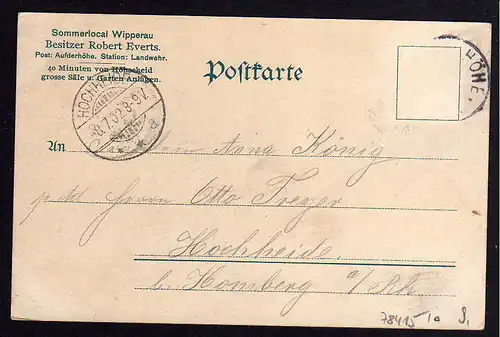 Sommerlocal Wipperau
Besitzer Robert Everts.
Post: Aufderhöhe. Station: Landwehr.
40 Minuten von Höhscheid
grosse Säle u. Garten Anlagen.
Postkarte
HÖHE.
HOCHHEIDE
8.7.02.8-9V.
An Anna König
Herrn Otto
Hochheide
b. Homberg a/Rh.
78415